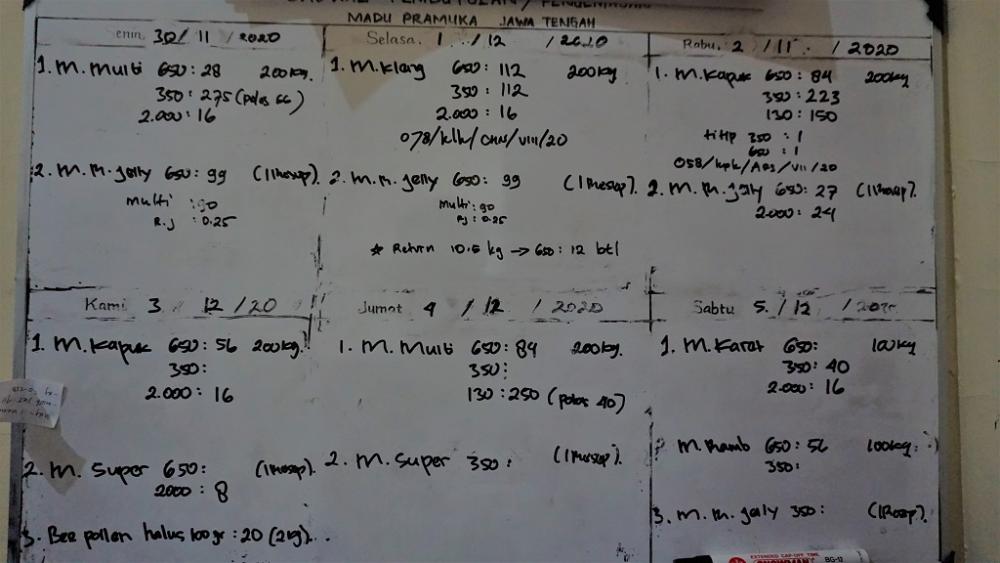 MADU PRAMUKA JAWA TENGAH
Senin 30/11/2020
1. M. Multi 650: 28 200kg.
350: 275 (polos 66)
2.000: 16
2. M. M. Jelly 650: 99 (1 Resep).
multi : 90
R.J : 0.25
Selasa 1 /12 /2020
1. M. Klang 650: 112 200kg
350: 112
2.000: 16
078/klk/CHN/VIII/20
2. M. M. Jelly 650: 99 (1 Resep).
Multi: 90
RJ: 0.25
* Return 10.5 kg → 650: 12 btl
Rabu 2 /11 /2020
1. M. Kapuk 650: 84 200kg
350: 223
130: 150
titip 350 : 1
650 : 1
058/kpk/APJ/VII/20
2. M. M. Jelly 650: 27 (1 Resep).
2.000: 24
Kami 3 12 /20
1. M. Kapuk 650: 56 200kg.
350:
2.000: 16
2. M. Super 650: (1 Resep).
2000: 8
3. Bee pollen halus 100 gr: 20 (2kg).
Jumat 4 /12 /2020
1. M. Multi 650: 84 200kg.
350:
130: 250 (polos 40)
2. M. Super 350: (1 Resep).
Sabtu 5 /12
1. M. Karet 650: 100kg
350: 40
2.000: 16
M. Ramb 650: 56 100kg.
350:
3. M. M. Jelly 350: (1 Resep).
EXTENDED CAP-OFF TIME
SNOWMAN
BG-12